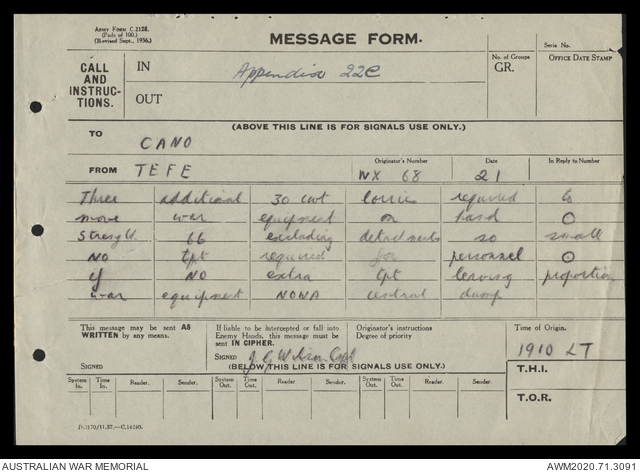 Army Form C.2128.
(Pads of 100.)
(Revised Sept., 1936.)
MESSAGE FORM.
Serial No.
CALL AND INSTRUC- TIONS.
IN
Appendix 22C
No. of Groups
GR.
OFFICE DATE STAMP
OUT
(ABOVE THIS LINE IS FOR SIGNALS USE ONLY.)
TO CANO
FROM TEFE
Originator's Number
WX 68
Date
21
In Reply to Number
Three additional 30 cwt lorries required to
move war equipment on hand O
Strength 66 excluding detachments so small
NO tpt required for personnel O
if NO extra tpt leaving proportion
war equipment NONA central dump
This message may be sent AS WRITTEN by any means.
SIGNED
If liable to be intercepted or fall into Enemy Hands, this message must be sent IN CIPHER.
SIGNED J G Wilson Capt
Originator's instructions
Degree of priority
Time of Origin.
1910 LT
(BELOW THIS LINE IS FOR SIGNALS USE ONLY.)
T.H.I.
System In. Time In. Reader. Sender. System Out. Time Out. Reader. Sender. System Out. Time Out. Reader. Sender.
T.O.R.
AUSTRALIAN WAR MEMORIAL
AWM2020.71.3091